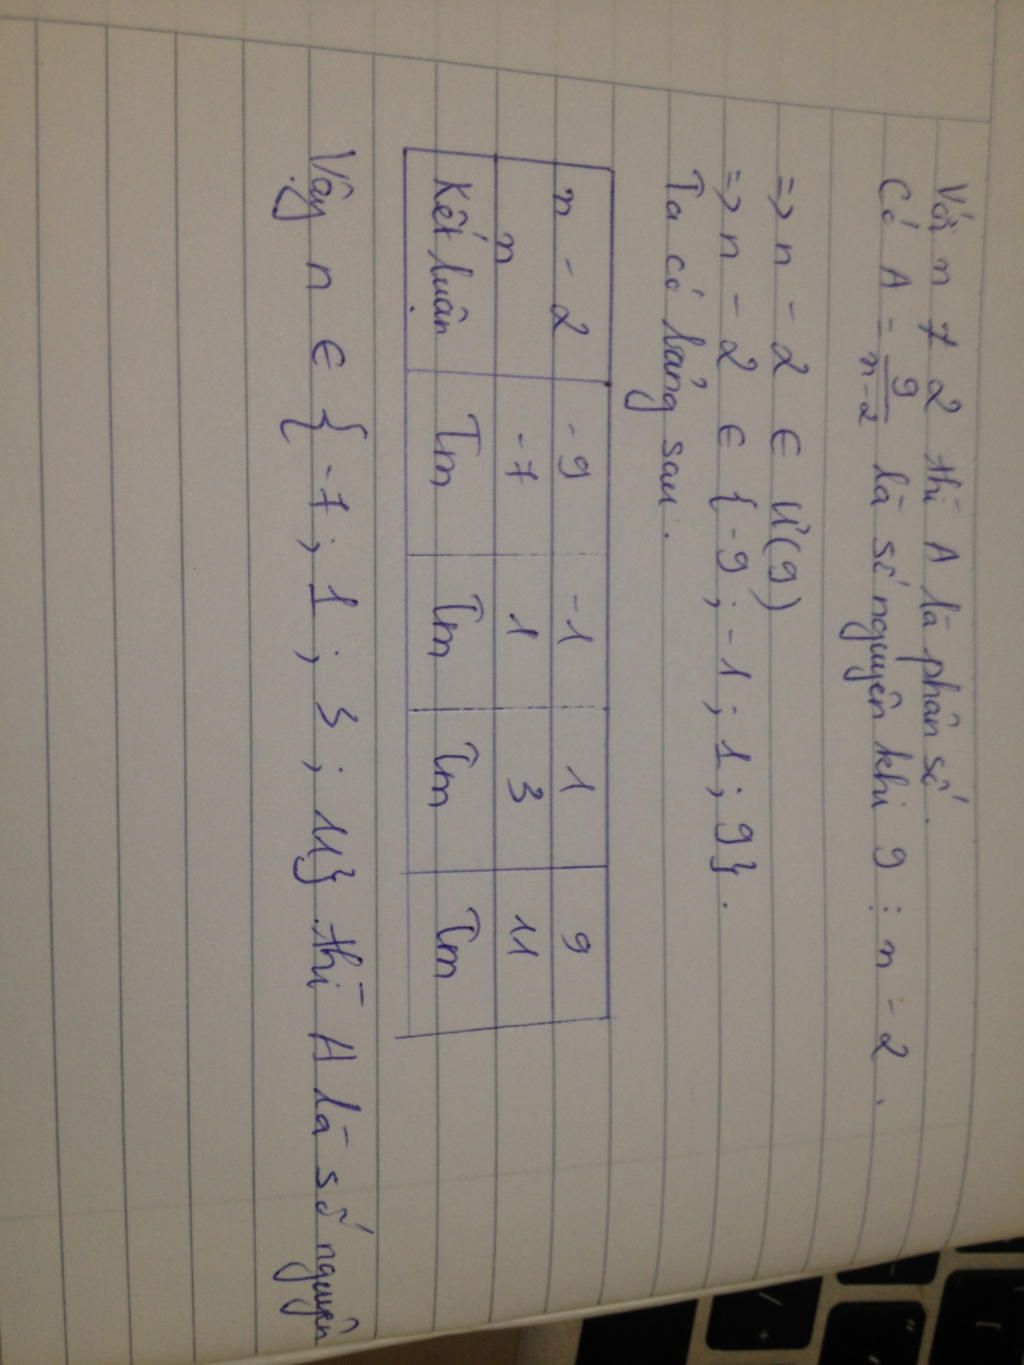 Với n ≠ 2 thì A là phân số.
Có A = 9/n-2 là số nguyên khi 9 ⋮ n - 2.
=> n - 2 ∈ Ư(9)
=> n - 2 ∈ {-9; -1; 1; 9}.
Ta có bảng sau.
n - 2 -9 -1 1 9
n -7 1 3 11
Kết luận Tm Tm Tm Tm
Vậy n ∈ {-7; 1; 3; 11} thì A là số nguyên